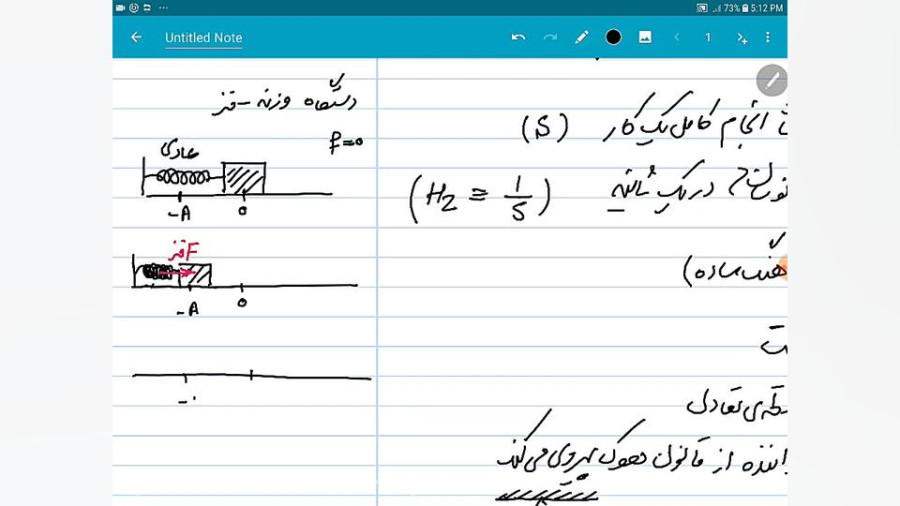 73% 5:12 PM
Untitled Note
1
دستگاه وزنه - فنر
f=0
عادی
-A 0
انجام کامل یک کار (S)
در یک ثانیه (Hz ≡ 1/S)
F فنر
-A 0
ساده)
ت
ی تعادل
از قانون هوک پیروی می کند